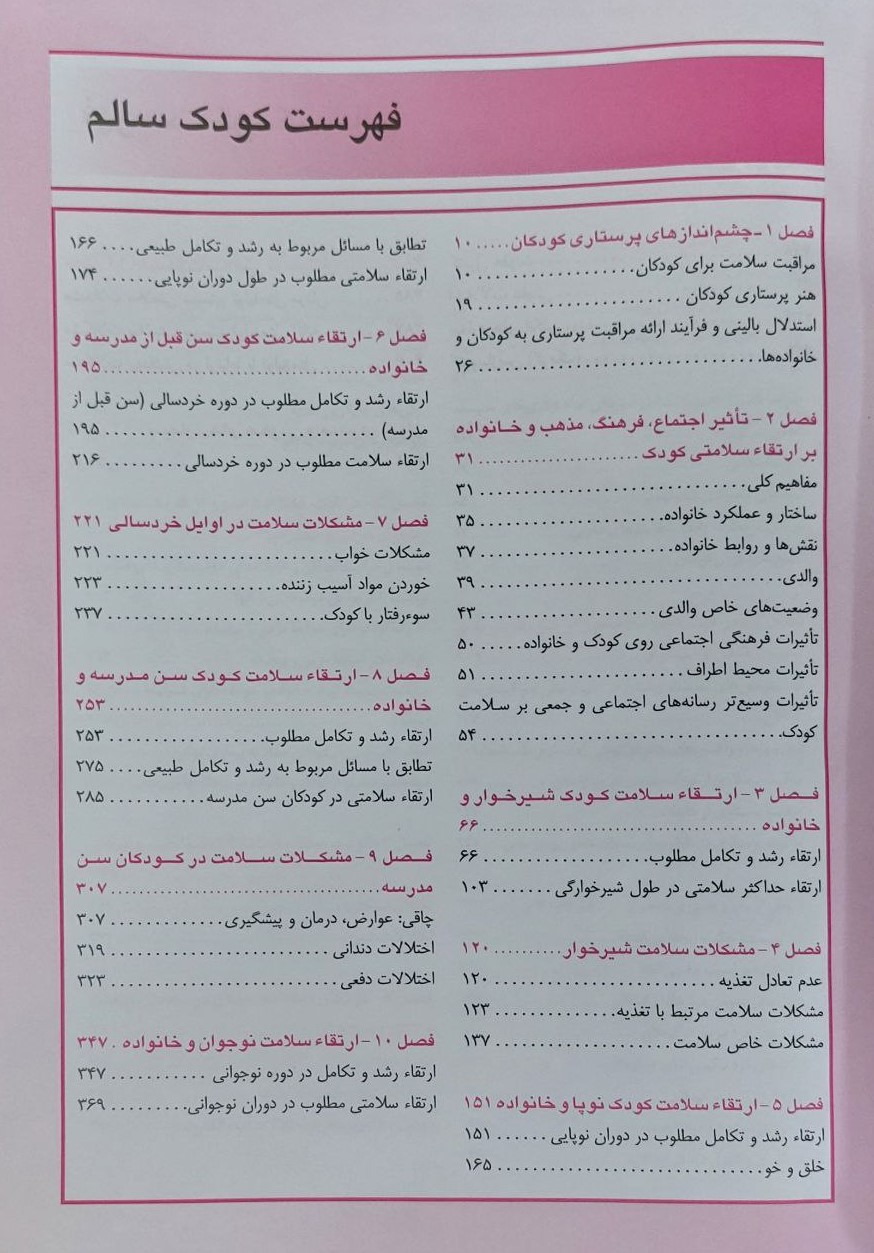 فهرست کودک سالم
فصل ۱-چشم‌اندازهای پرستاری کودکان..... ۱۰
مراقبت سلامت برای کودکان................. ۱۰
هنر پرستاری کودکان ........................ ۱۹
استدلال بالینی و فرآیند ارائه مراقبت پرستاری به کودکان و
خانواده‌ها............................... ۲۶
فصل ۲- تأثیر اجتماع، فرهنگ، مذهب و خانواده
بر ارتقاء سلامتی کودک........................ ۳۱
مفاهیم کلی............................... ۳۱
ساختار و عملکرد خانواده..................... ۳۵
نقش‌ها و روابط خانواده...................... ۳۷
والدی................................... ۳۹
وضعیت‌های خاص والدی..................... ۴۳
تأثیرات فرهنگی اجتماعی روی کودک و خانواده..... ۵۰
تأثیرات محیط اطراف........................ ۵۱
تأثیرات وسیع‌تر رسانه‌های اجتماعی و جمعی بر سلامت
کودک.................................. ۵۴
فصل ۳- ارتقاء سلامت کودک شیرخوار و
خانواده ........................................ ۶۶
ارتقاء رشد و تکامل مطلوب.................... ۶۶
ارتقاء حداکثر سلامتی در طول شیرخوارگی ....... ۱۰۳
فصل ۴- مشکلات سلامت شیرخوار.......... ۱۲۰
عدم تعادل تغذیه .......................... ۱۲۰
مشکلات سلامت مرتبط با تغذیه.............. ۱۲۳
مشکلات خاص سلامت .................... ۱۳۷
فصل ۵- ارتقاء سلامت کودک نوپا و خانواده ۱۵۱
ارتقاء رشد و تکامل مطلوب در دوران نوپایی ...... ۱۵۱
خلق و خو............................... ۱۶۵
تطابق با مسائل مربوط به رشد و تکامل طبیعی.... ۱۶۶
ارتقاء سلامتی مطلوب در طول دوران نوپایی...... ۱۷۴
فصل ۶- ارتقاء سلامت کودک سن قبل از مدرسه و
خانواده...................................... ۱۹۵
ارتقاء رشد و تکامل مطلوب در دوره خردسالی (سن قبل از
مدرسه) ............................... ۱۹۵
ارتقاء سلامت مطلوب در دوره خردسالی......... ۲۱۶
فصل ۷- مشکلات سلامت در اوایل خردسالی ۲۲۱
مشکلات خواب.......................... ۲۲۱
خوردن مواد آسیب زننده.................... ۲۲۳
سوءرفتار با کودک........................ ۲۳۷
فصل ۸- ارتقاء سلامت کودک سن مدرسه و
خانواده...................................... ۲۵۳
ارتقاء رشد و تکامل مطلوب.................. ۲۵۳
تطابق با مسائل مربوط به رشد و تکامل طبیعی.... ۲۷۵
ارتقاء سلامتی در کودکان سن مدرسه........... ۲۸۵
فصل ۹- مشکلات سلامت در کودکان سن
مدرسه...................................... ۳۰۷
چاقی: عوارض، درمان و پیشگیری............. ۳۰۷
اختلالات دندانی ........................ ۳۱۹
اختلالات دفعی......................... ۳۲۳
فصل ۱۰- ارتقاء سلامت نوجوان و خانواده . ۳۴۷
ارتقاء رشد و تکامل در دوره نوجوانی ........... ۳۴۷
ارتقاء سلامتی مطلوب در دوران نوجوانی......... ۳۶۹